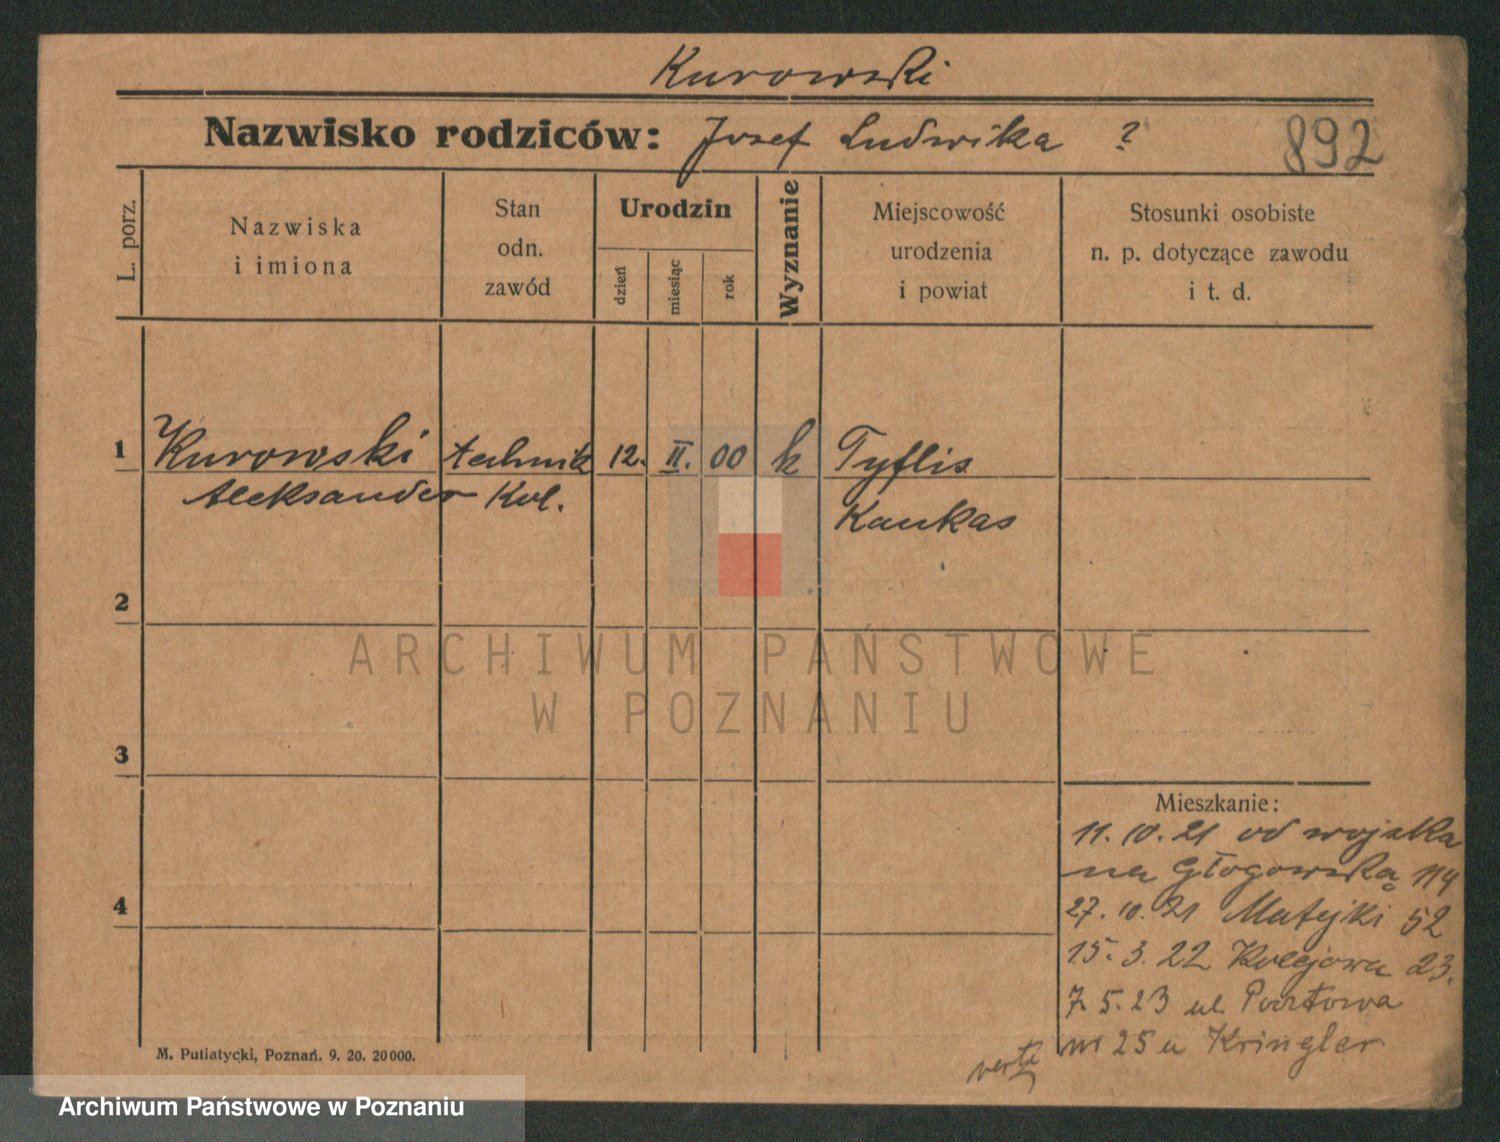 Kurowski
Nazwisko rodziców: Josef Ludwika ?
892
L. porz.
Nazwiska
i imiona
Stan
odn.
zawód
Urodzin
dzień
miesiąc
rok
Wyznanie
Miejscowość
urodzenia
i powiat
Stosunki osobiste
n. p. dotyczące zawodu
i t. d.
1
Kurowski technik 12. II. 00 k Tyflis
Aleksander Kol.
Kaukas
2
ARCHIWUM PAŃSTWOWE
W POZNANIU
3
4
Mieszkanie:
11.10.21 od wojska
na Głogowską 114
27.10.21 Matejki 52
15.3.22 Kolejowa 23.
7.5.23 ul Pocztowa
nr 25 u Kringler
verte
M. Putiatycki, Poznań. 9. 20. 20000.
Archiwum Państwowe w Poznaniu